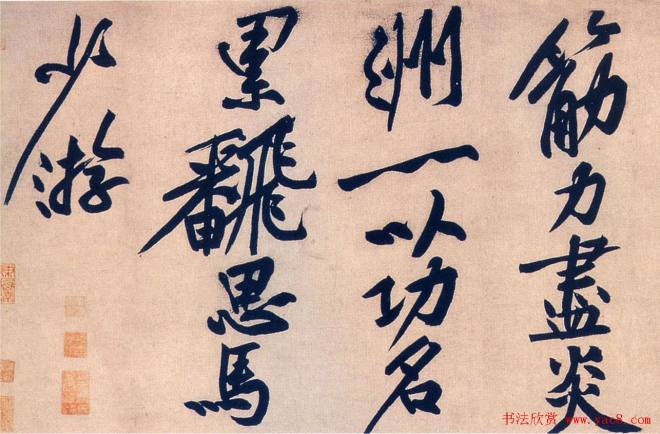 筋力盡炎
洲一以功名
累飜思馬
少游
书法欣赏 www.yac8.com